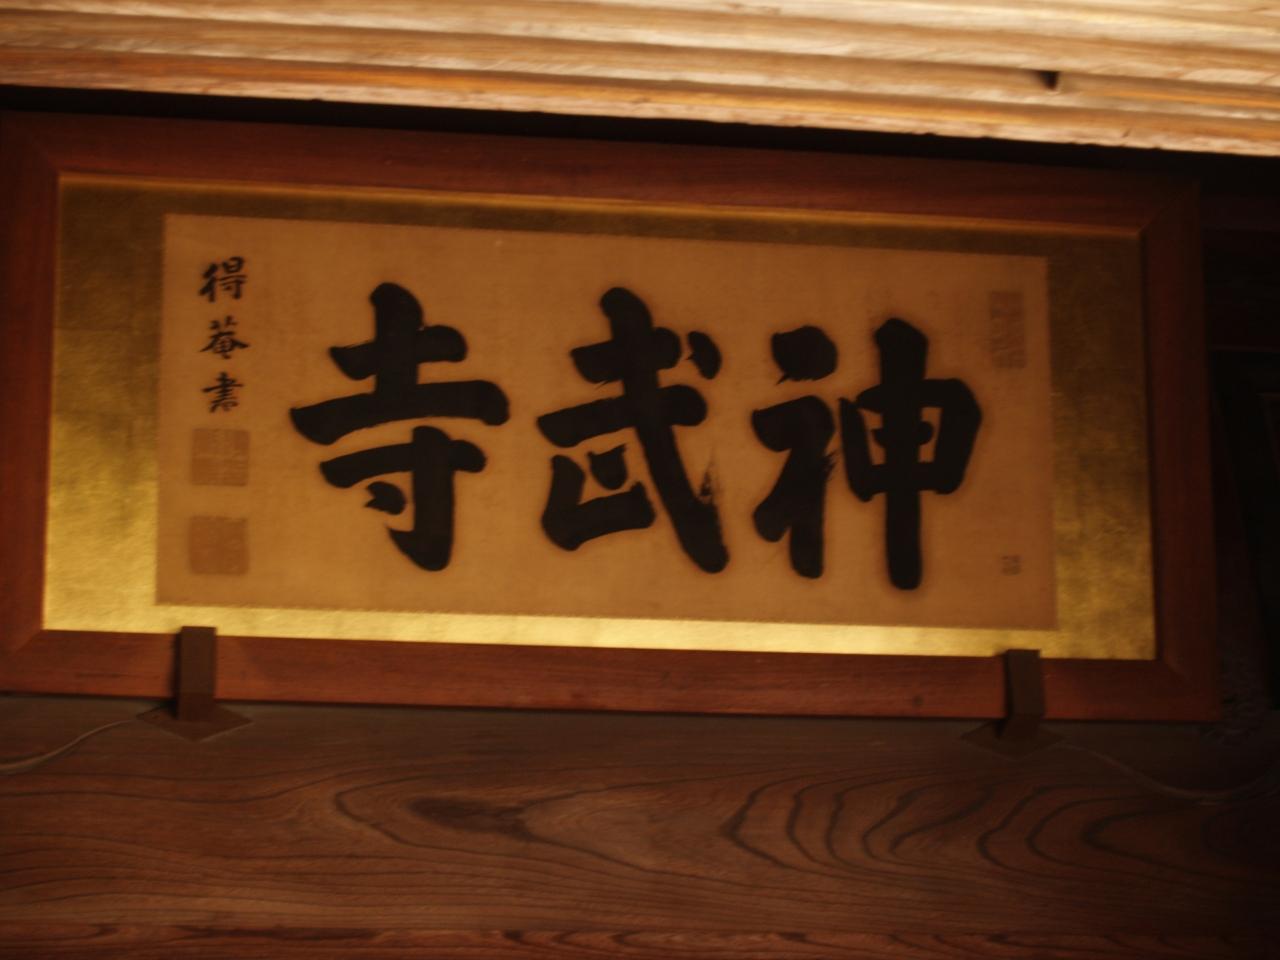 神武寺
得菴書